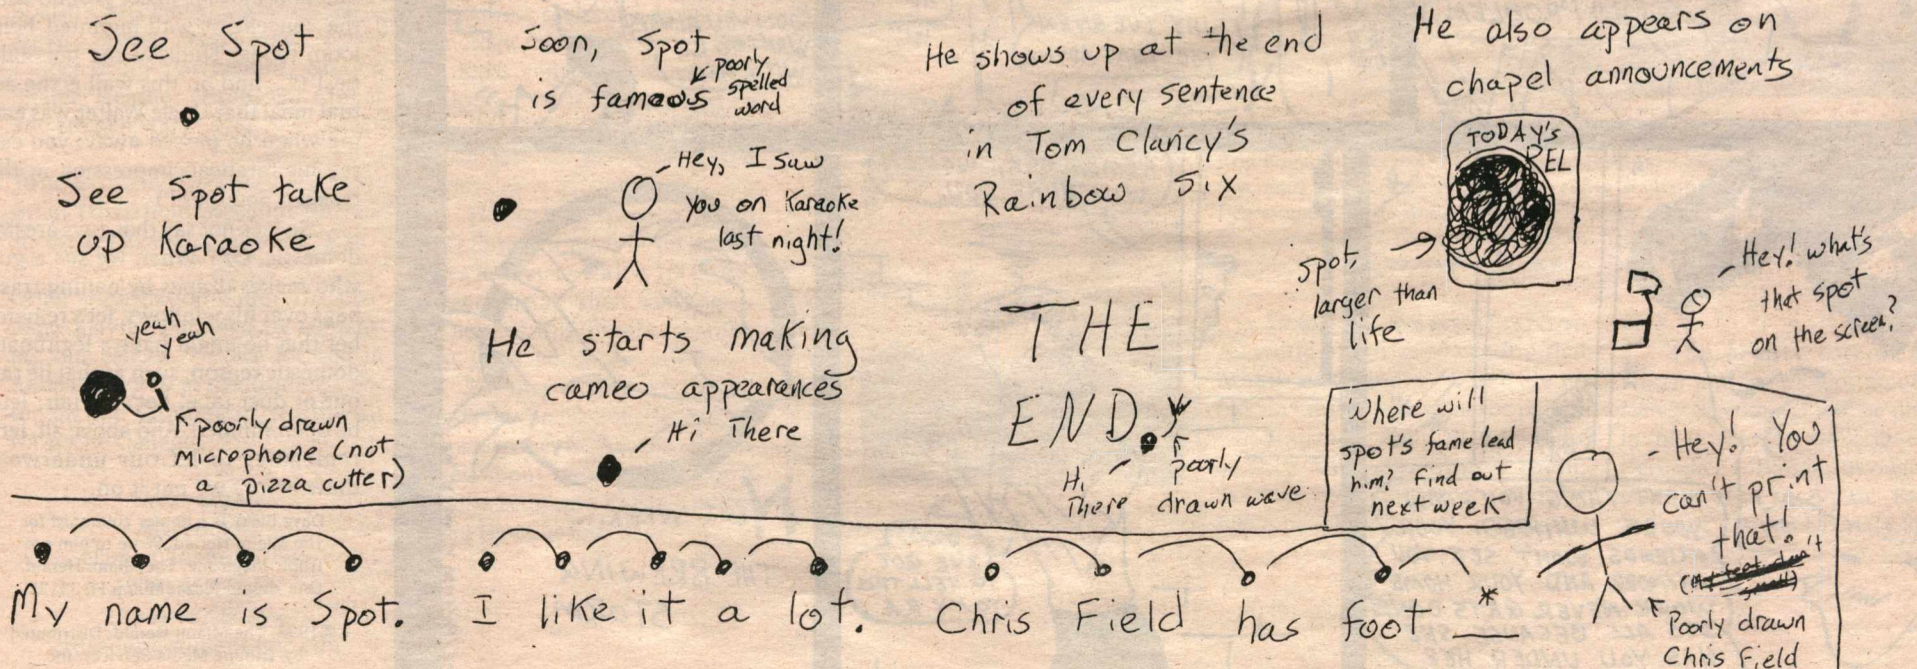 See Spot
See Spot take
up Karaoke
yeah
yeah
poorly drawn
microphone (not
a pizza cutter)
Soon, Spot
is fameous
poorly
spelled
word
Hey, I saw
you on Karaoke
last night!
He starts making
cameo appearances
Hi There
He shows up at the end
of every sentence
in Tom Clancy's
Rainbow Six
THE
END.
Hi
There
poorly
drawn wave
He also appears on
chapel announcements
TODAY's
PEL
Spot,
larger than
life
Hey! what's
that spot
on the screen?
Where will
spot's fame lead
him? Find out
next week
My name is Spot. I like it a lot. Chris Field has foot __*
Hey! You
can't print
that!
(My feet don't
smell)
Poorly drawn
Chris Field